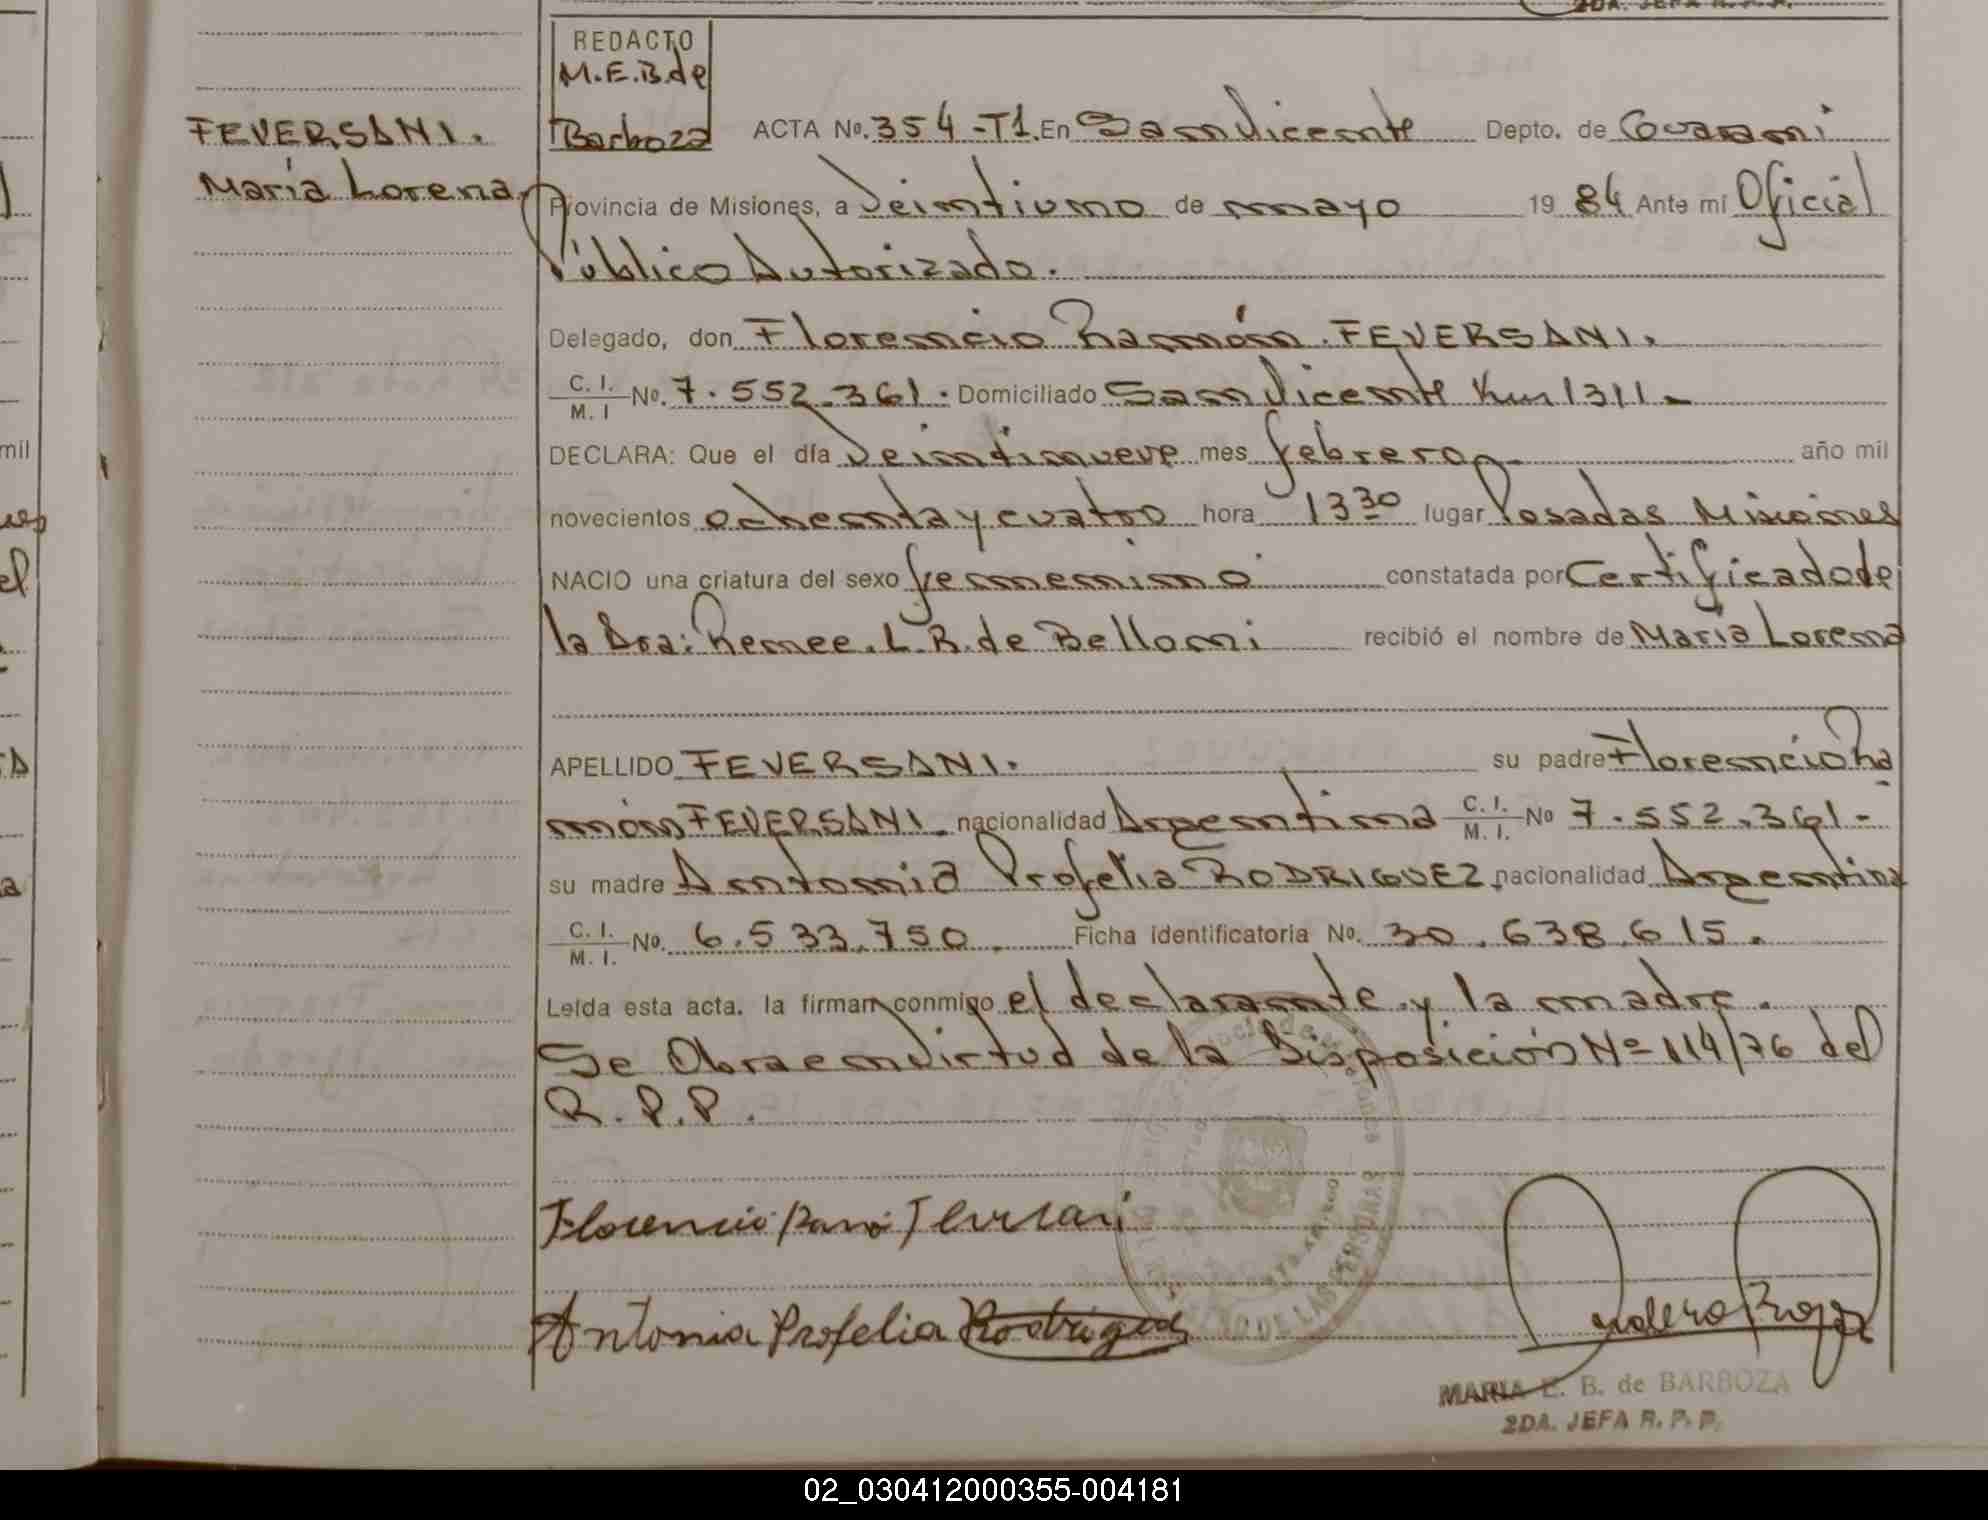 2DA. JEFA R. P. P.
REDACTO
M.E.B. de
Barboza
FEVERSANI.
María Lorena
ACTA No. 354-T1. En San Vicente Depto. de Guarani
Provincia de Misiones, a Veintiuno de mayo 1984 Ante mí Oficial
Público Autorizado.
Delegado, don Florencio Ramón. FEVERSANI.
C. I. / M. I No. 7.552.361. Domiciliado San Vicente Km 1311-
DECLARA: Que el día Veintinueve mes febrero año mil
novecientos ochenta y cuatro hora 13 30 lugar Posadas Misiones
NACIO una criatura del sexo femenino constatada por Certificado de
la Dra: Renee. L. B. de Belloni recibió el nombre de María Lorena
APELLIDO FEVERSANI. su padre Florencio Ra
món FEVERSANI. nacionalidad Argentina C. I. / M. I. No 7.552.361-
su madre Antonia Profelia RODRIGUEZ, nacionalidad Argentina
C. I. / M. I. No. 6.533.750. Ficha identificatoria No. 30.638.615.
Leída esta acta, la firman conmigo el declarante y la madre.
Se Obra en virtud de la Disposición Nº 114/76 del
R.P.P.
Florencio Ramó Feversani
Antonia Profelia Rodriguez
MARIA E. B. de BARBOZA
2DA. JEFA R. P. P.
02_030412000355-004181